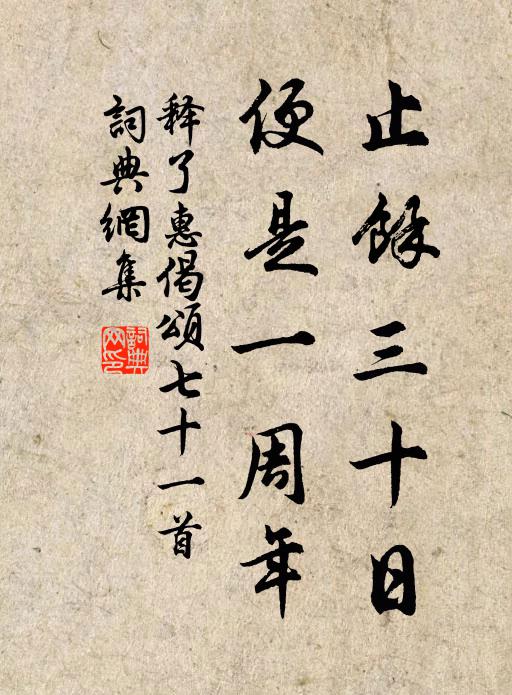 止餘三十日
便是一周年
释了惠偈頌七十一首
詞典網集
詞典网印